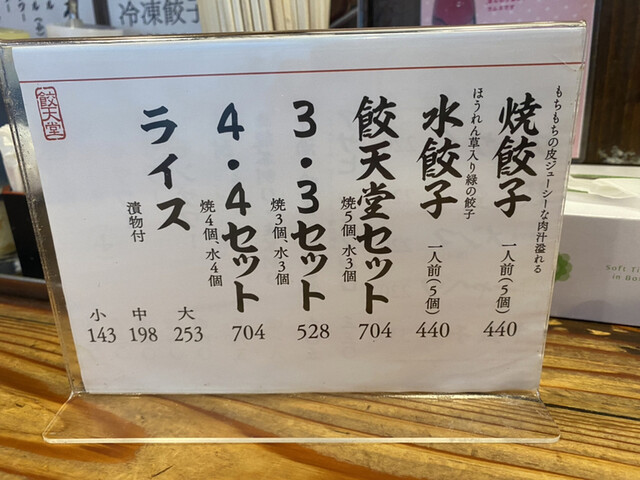 冷凍餃子
もちもちの皮ジューシーな肉汁溢れる
焼餃子
一人前(5個)
440
ほうれん草入り緑の餃子
水餃子
一人前(5個)
440
餃天堂セット
焼5個、水3個
704
3・3セット
焼3個、水3個
528
4・4セット
焼4個、水4個
704
ライス
漬物付
大
253
中
198
小
143
餃天堂